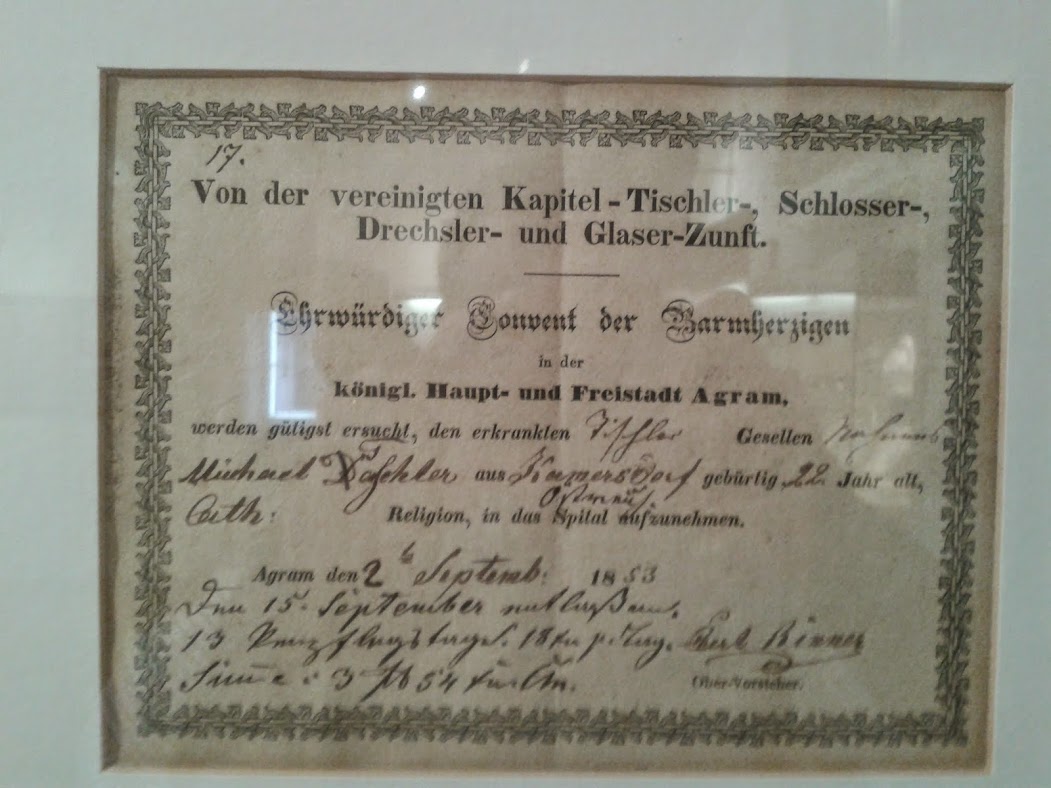 17.
Von der vereinigten Kapitel-Tischler-, Schlosser-,
Drechsler- und Glaser-Zunft.
Ehrwürdiger Convent der Barmherzigen
in der
königl. Haupt- und Freistadt Agram,
werden gütigst ersucht, den erkrankten Tischler Gesellen Nahmens
Michael aus gebürtig 22 Jahr alt,
Cath: Religion, in das Spital aufzunehmen.
Agram den 2 Septemb: 1853
Den 15. September entlaßen.
13 Verpflegstage. 18 p. Tag.
3 54
Ober-Vorsteher.